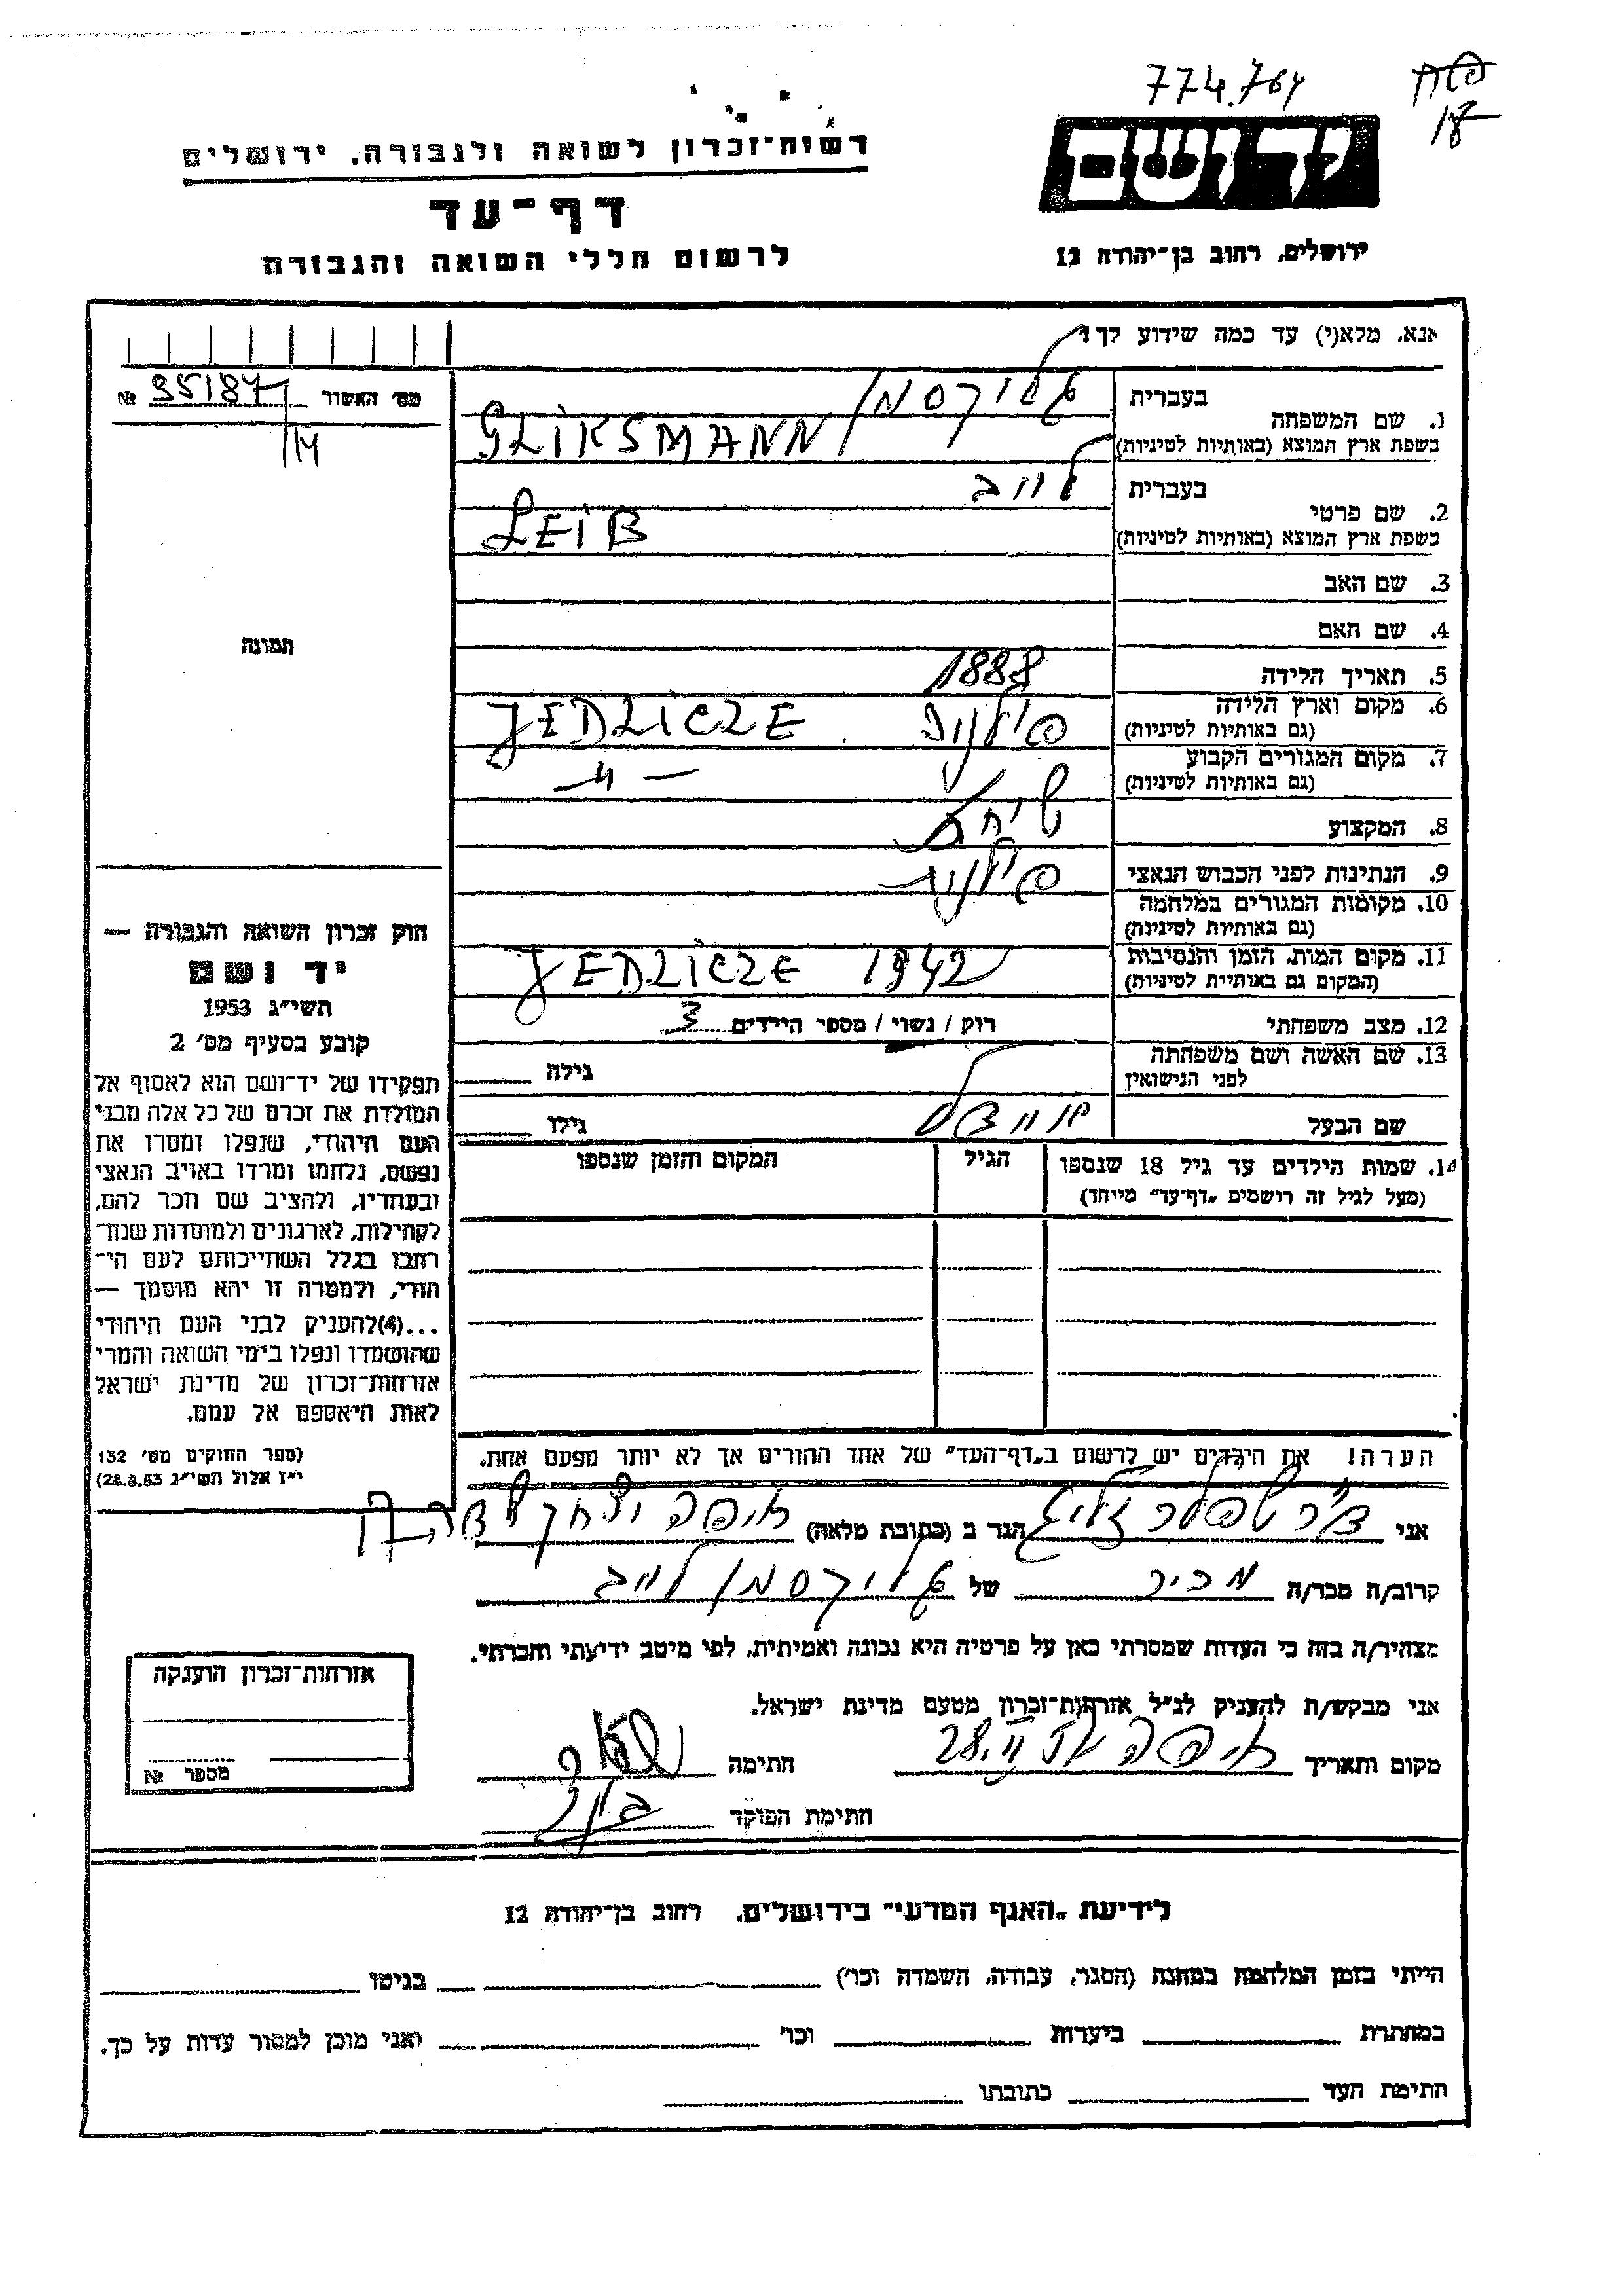 774.764
רשות־זכרון לשואה ולגבורה, ירושלים
יד ושם
דף־עד
לרשום חללי השואה והגבורה
ירושלים, רחוב בן־יהודה 12
אנא, מלא(י) עד כמה שידוע לך!
מס׳ האשור 35184 №
/14
1. שם המשפחה
בעברית גליקסמן
בשפת ארץ המוצא (באותיות לטיניות) GLIKSMANN
2. שם פרטי
בעברית לייב
בשפת ארץ המוצא (באותיות לטיניות) LEIB
3. שם האב
4. שם האם
תמונה
5. תאריך הלידה 1888
6. מקום וארץ הלידה פולניה JEDLICZE
(גם באותיות לטיניות)
7. מקום המגורים הקבוע — " —
(גם באותיות לטיניות)
8. המקצוע
9. הנתינות לפני הכבוש הנאצי פולנית
10. מקומות המגורים במלחמה
(גם באותיות לטיניות)
11. מקום המות, הזמן והנסיבות JEDLICZE 1942
(המקום גם באותיות לטיניות)
12. מצב משפחתי רוק / נשוי / מספר הילדים 3
13. שם האשה ושם משפחתה
לפני הנישואין
גילה
שם הבעל
גילו
14. שמות הילדים עד גיל 18 שנספו הגיל המקום והזמן שנספו
(מעל לגיל זה רושמים „דף־עד״ מיוחד)
חוק זכרון השואה והגבורה —
יד ושם
תשי״ג 1953
קובע בסעיף מס׳ 2
תפקידו של יד־ושם הוא לאסוף אל
המולדת את זכרם של כל אלה מבני
העם היהודי, שנפלו ומסרו את
נפשם, נלחמו ומרדו באויב הנאצי
ובעוזריו, ולהציב שם וזכר להם,
לקהילות, לארגונים ולמוסדות שנח־
רבו בגלל השתייכותם לעם הי־
הודי, ולמטרה זו יהא מוסמך —
...(4)להעניק לבני העם היהודי
שהושמדו ונפלו בימי השואה והמרי
אזרחות־זכרון של מדינת ישראל
לאות היאספם אל עמם.
(ספר החוקים מס׳ 132
י״ז אלול תשי״ג 28.8.53)
הערה! את הילדים יש לרשום ב„דף־העד״ של אחד ההורים אך לא יותר מפעם אחת.
אני ד״ר הגר ב (כתובת מלאה) חיפה יצחק
קרוב/ה מכר/ה מכיר של גליקסמן לייב
מצהיר/ה בזה כי העדות שמסרתי כאן על פרטיה היא נכונה ואמיתית, לפי מיטב ידיעתי והכרתי.
אני מבקש/ת להעניק לנ״ל אזרחות־זכרון מטעם מדינת ישראל.
מקום ותאריך חיפה 28.II חתימה
חתימת הפוקד
אזרחות־זכרון הוענקה
מספר №
לידיעת „האגף המדעי״ בירושלים, רחוב בן־יהודה 12
הייתי בזמן המלחמה במחנה (הסגר, עבודה, השמדה וכו׳) בגיטו
במחתרת ביערות וכו׳ ואני מוכן למסור עדות על כך.
חתימת העד כתובתו